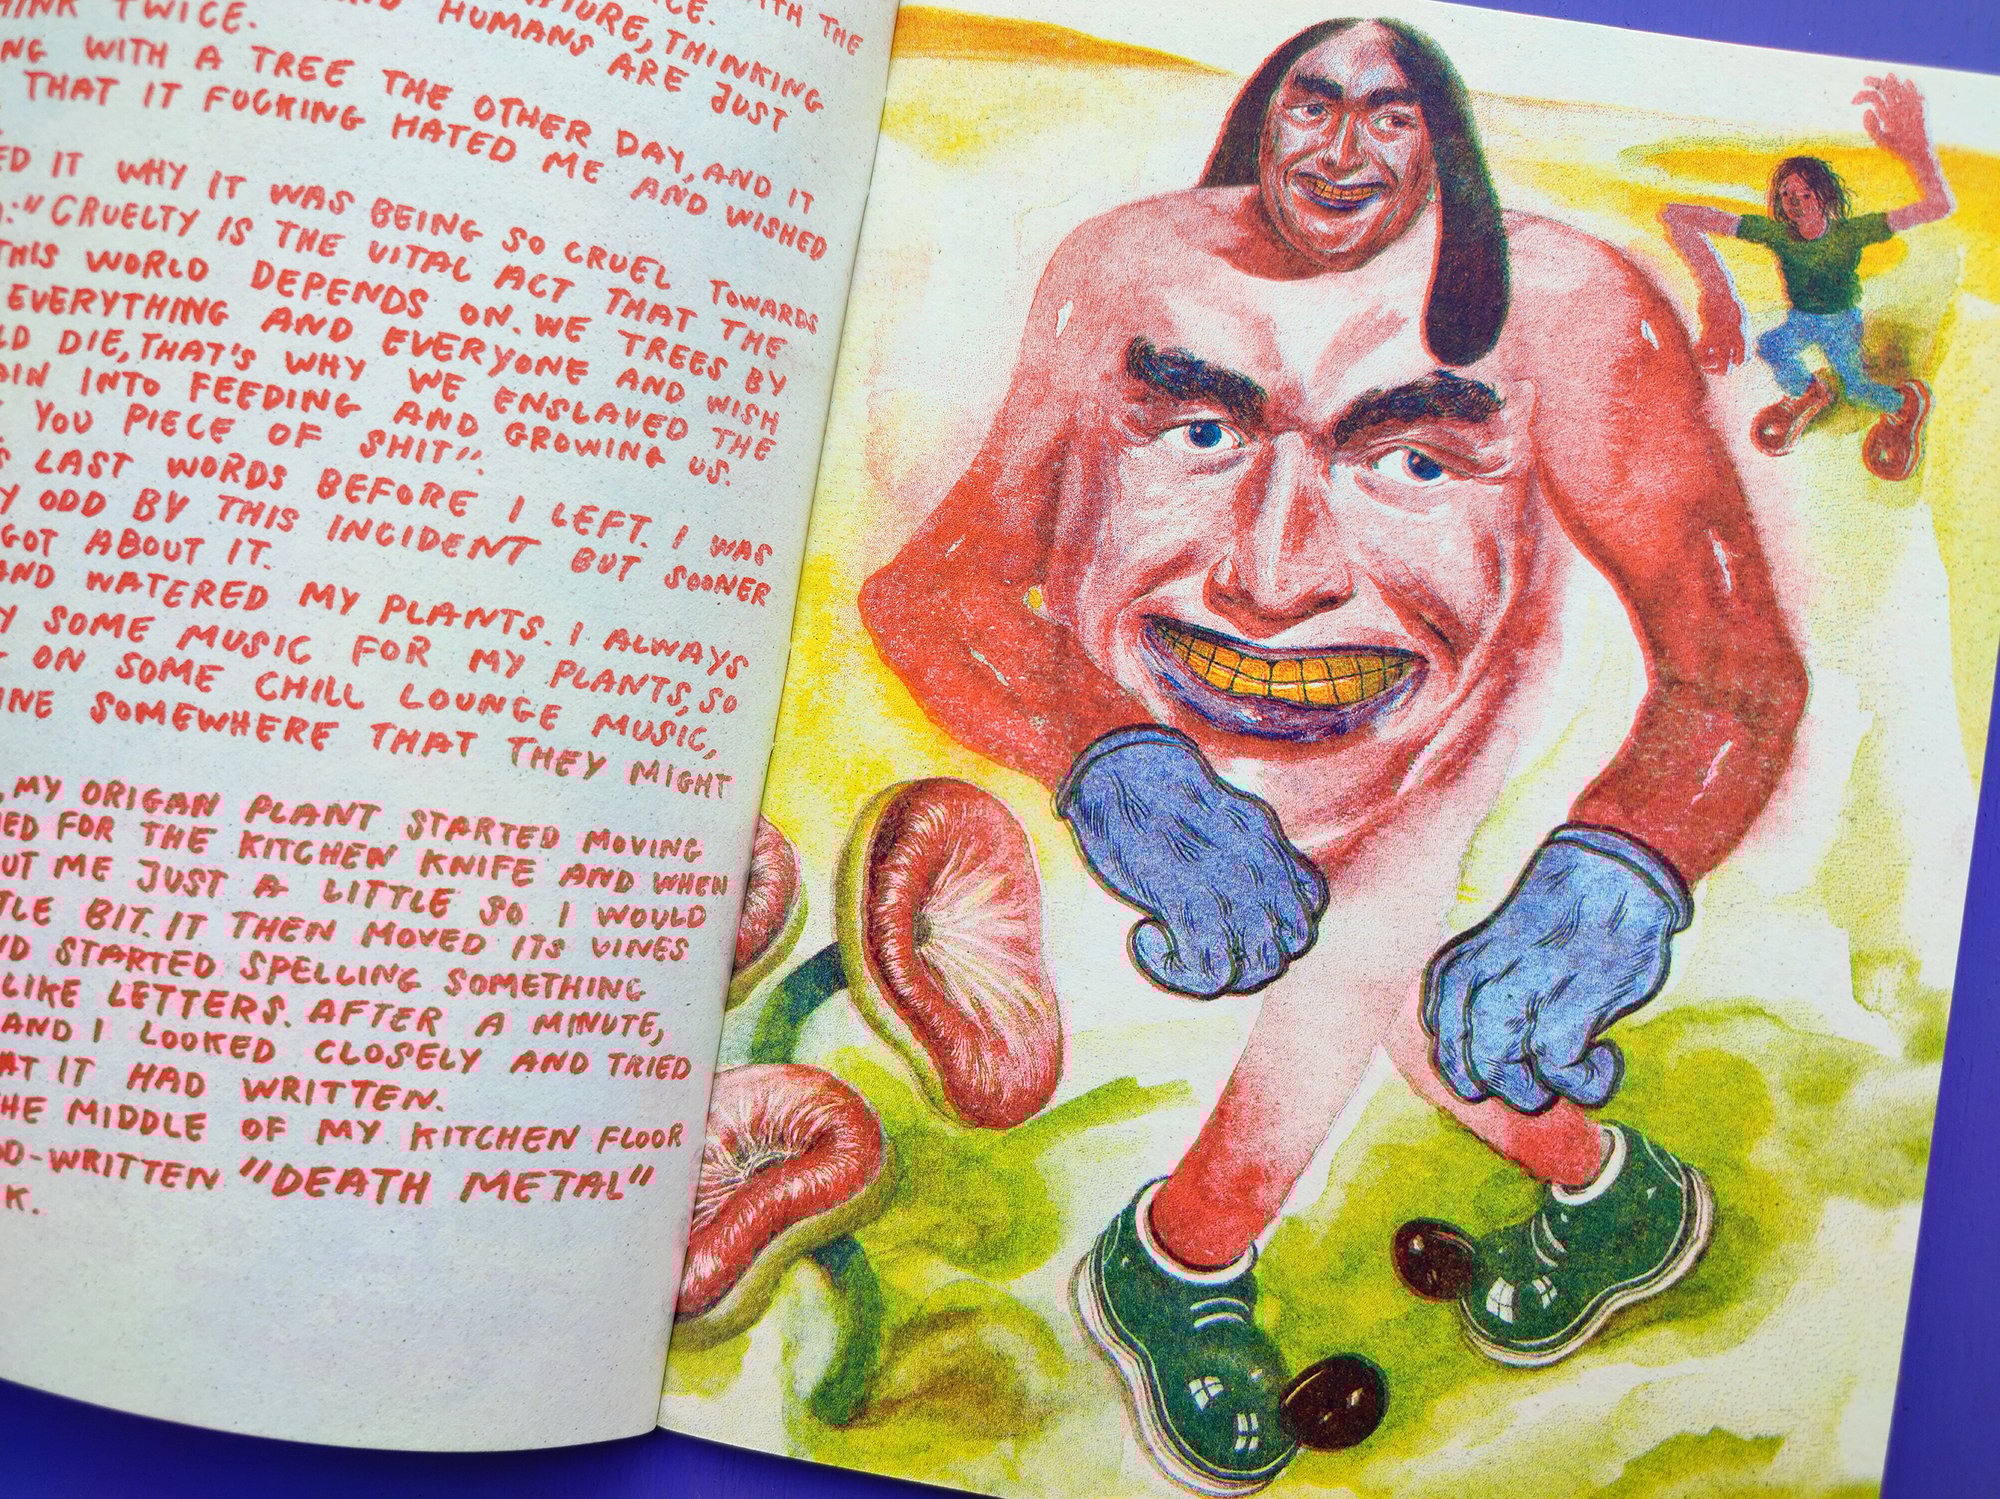 WITH THE
THINK TWICE.
NATURE, THINKING
AND HUMANS ARE JUST
WITH A TREE THE OTHER DAY, AND IT
THAT IT FUCKING HATED ME AND WISHED
IT WHY IT WAS BEING SO CRUEL TOWARDS
:"CRUELTY IS THE VITAL ACT THAT THE
THIS WORLD DEPENDS ON. WE TREES BY
EVERYTHING AND EVERYONE AND WISH
DIE, THAT'S WHY WE ENSLAVED THE
INTO FEEDING AND GROWING US.
YOU PIECE OF SHIT".
LAST WORDS BEFORE I LEFT. I WAS
ODD BY THIS INCIDENT BUT SOONER
GOT ABOUT IT.
AND WATERED MY PLANTS. I ALWAYS
SOME MUSIC FOR MY PLANTS, SO
ON SOME CHILL LOUNGE MUSIC,
SOMEWHERE THAT THEY MIGHT
, MY ORIGAN PLANT STARTED MOVING
FOR THE KITCHEN KNIFE AND WHEN
ME JUST A LITTLE SO I WOULD
BIT. IT THEN MOVED ITS VINES
STARTED SPELLING SOMETHING
LIKE LETTERS. AFTER A MINUTE,
AND I LOOKED CLOSELY AND TRIED
IT HAD WRITTEN.
THE MIDDLE OF MY KITCHEN FLOOR
-WRITTEN "DEATH METAL"
K.